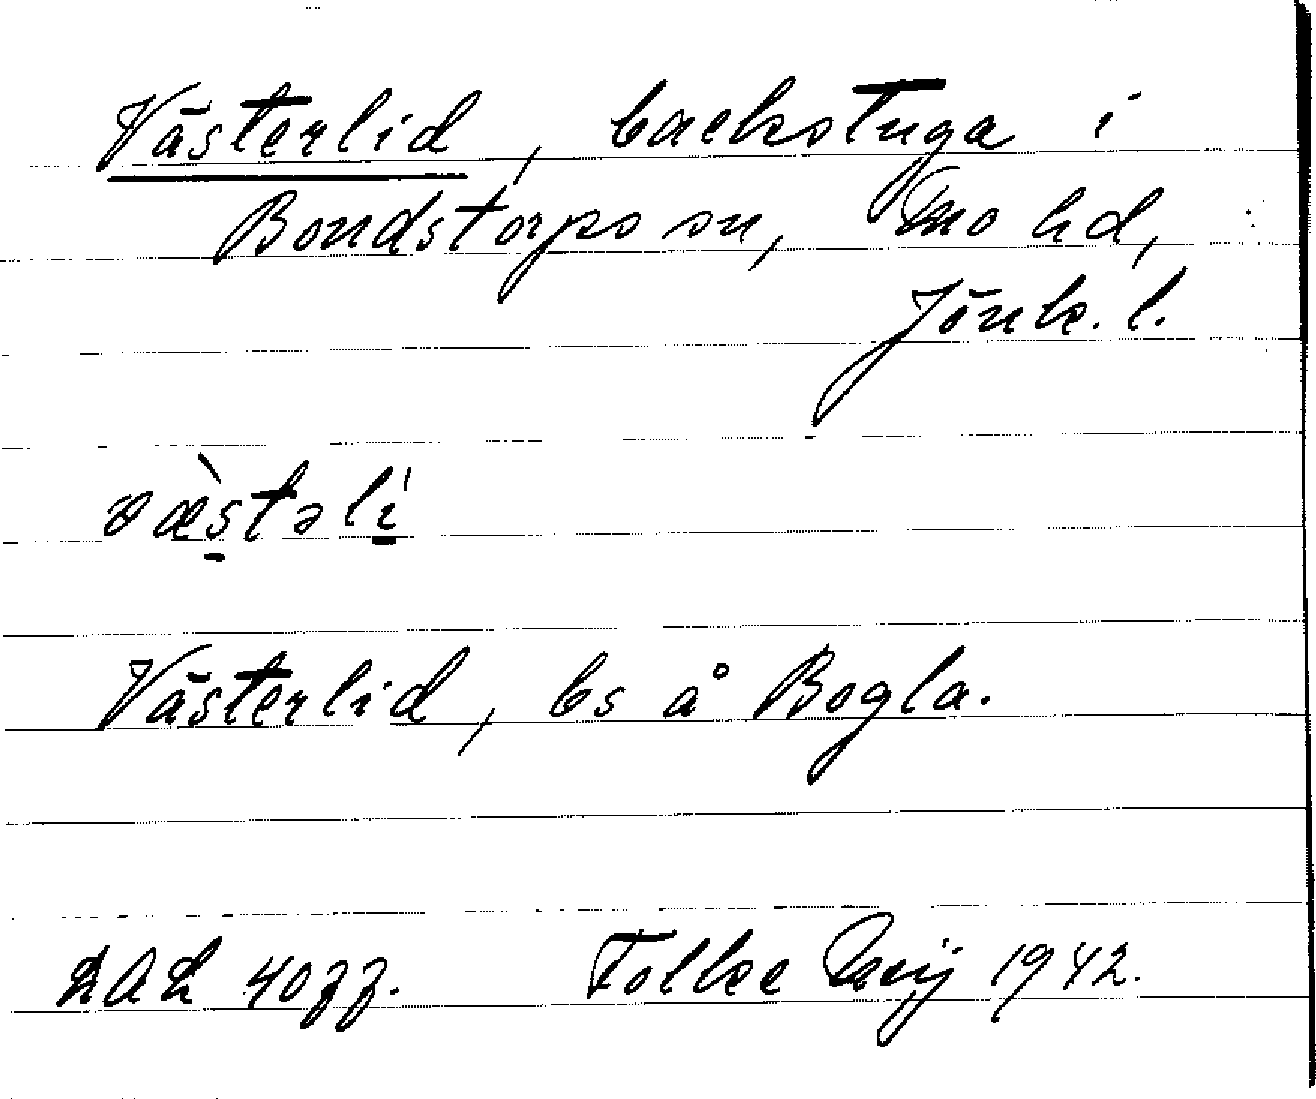 Västerlid, backstuga i
Bondstorps sn, Mo hd,
Jönk. l.
væ̀stəlí
Västerlid, bs å Bogla.
4077.
Folke 1942.